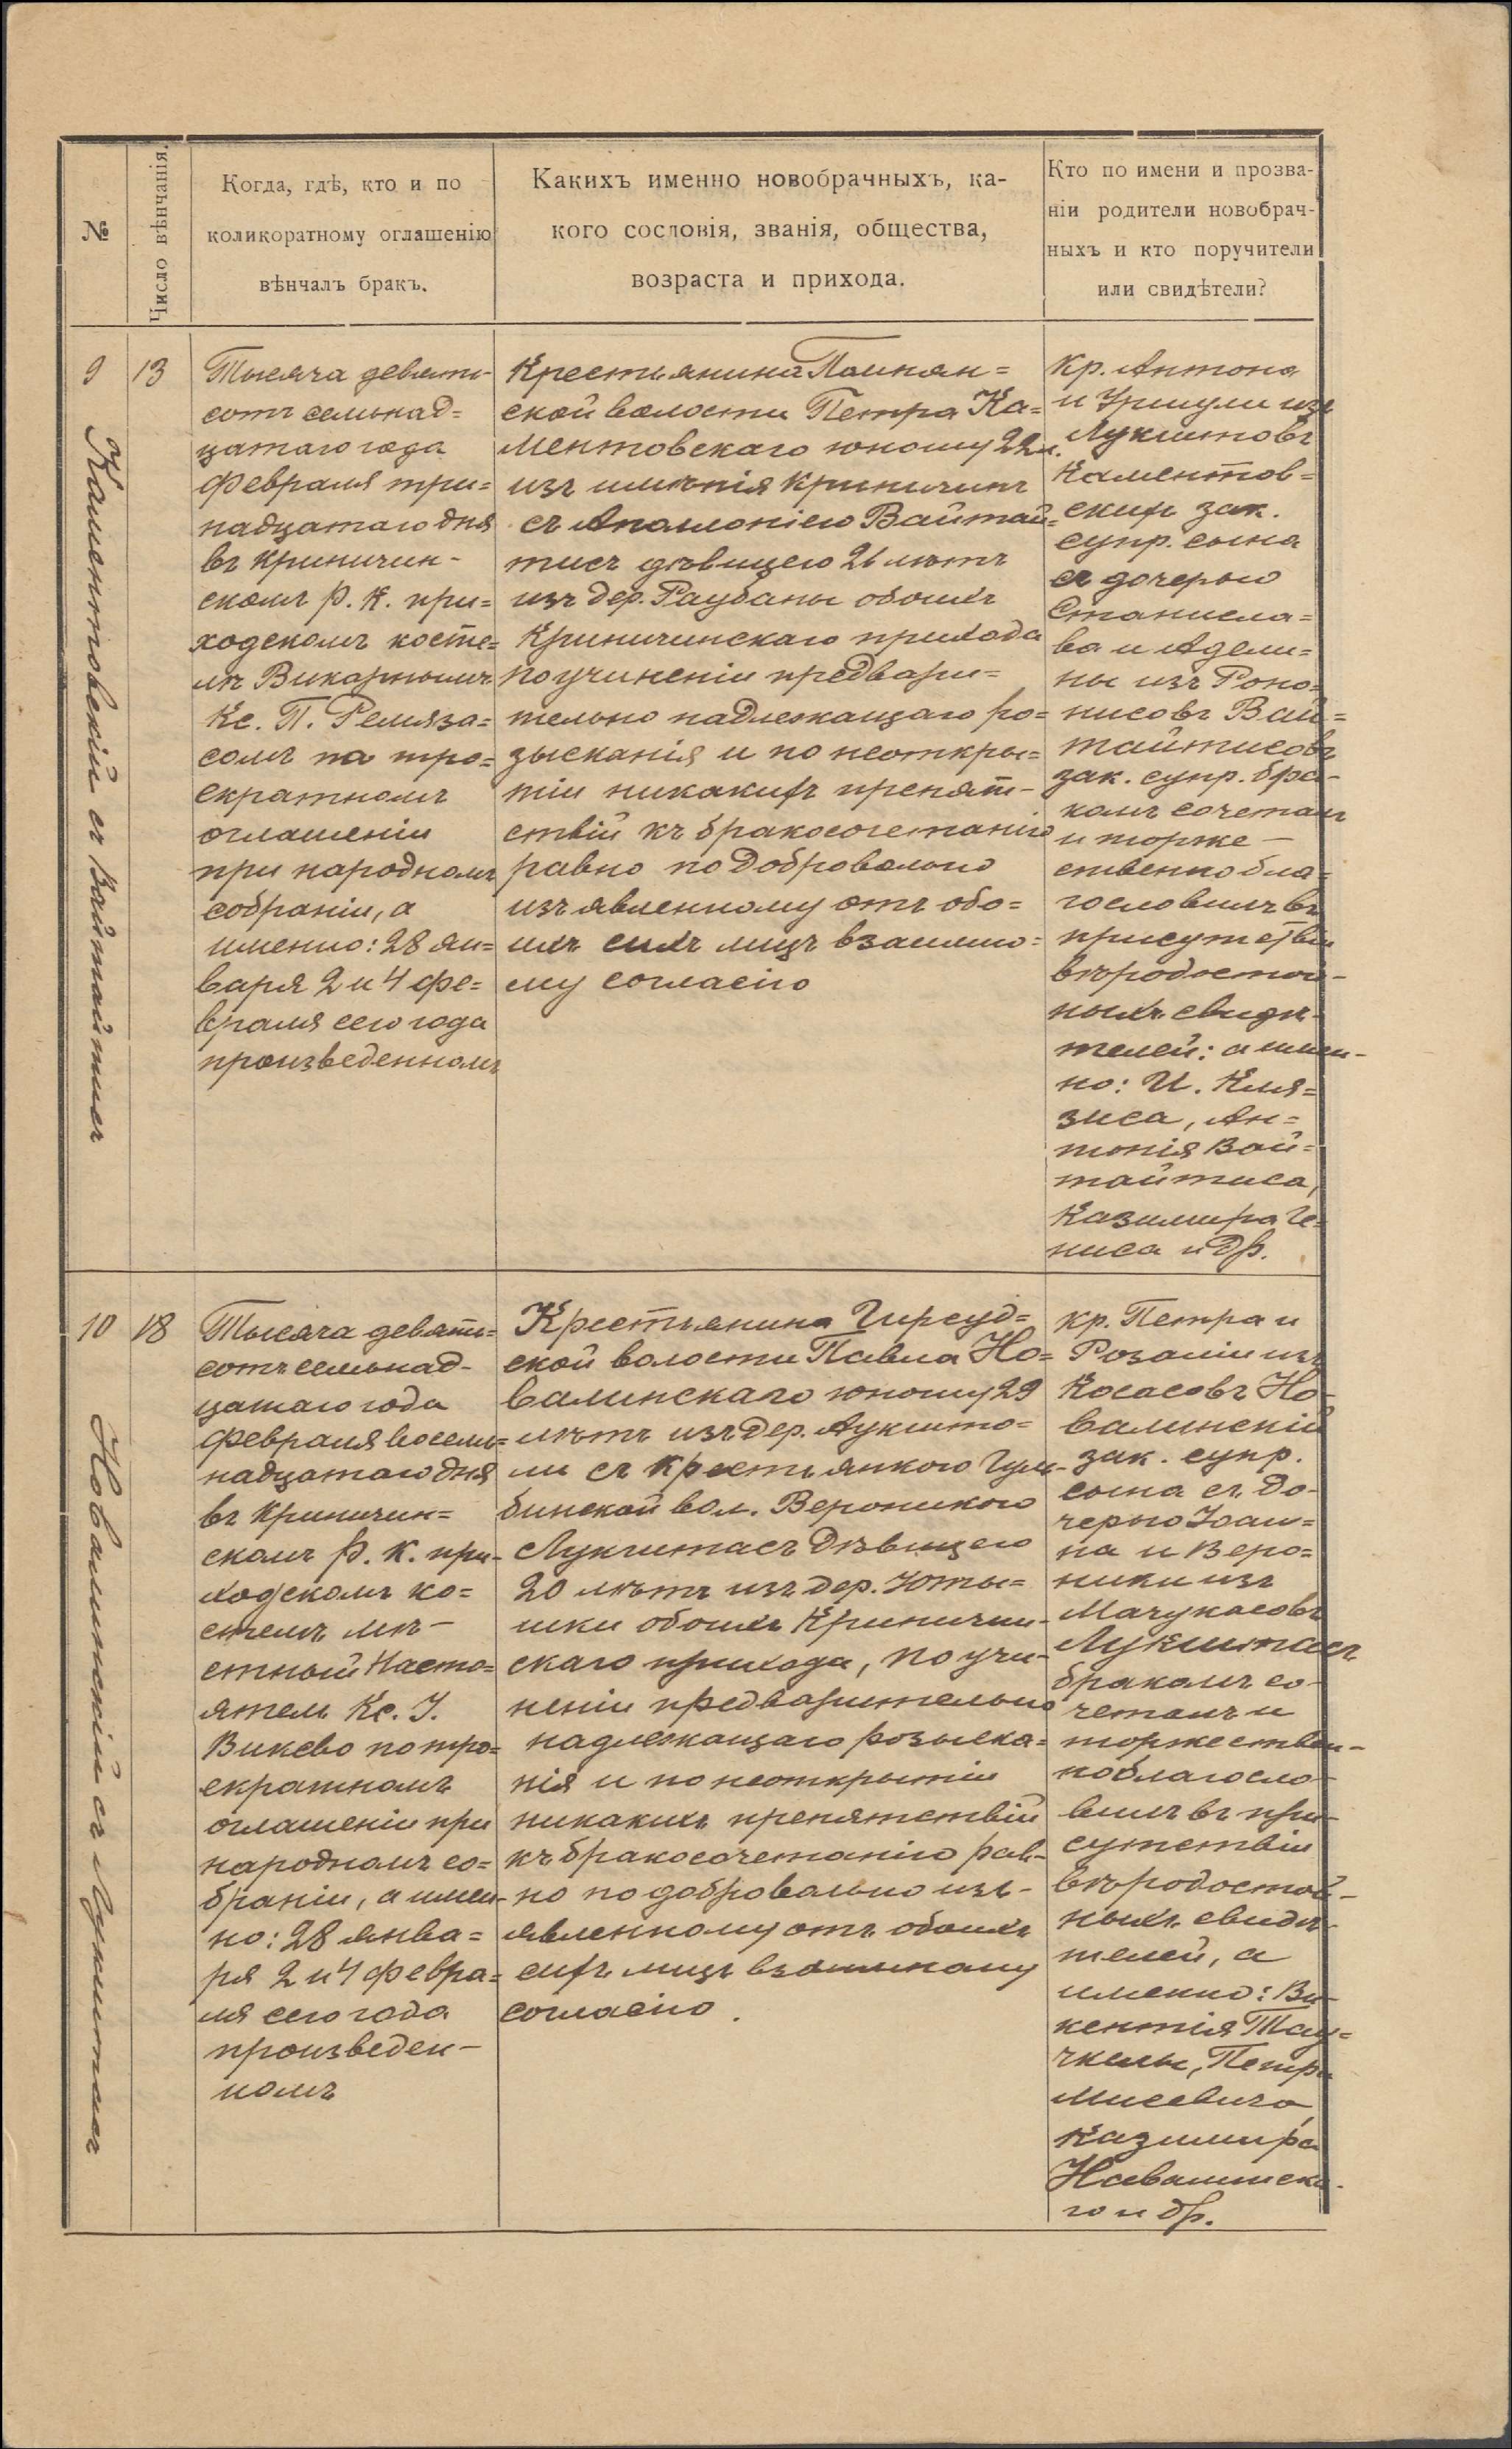 №
Число вѣнчанія.
Когда, гдѣ, кто и по
коликоратному оглашенію
вѣнчалъ бракъ.
Какихъ именно новобрачныхъ, ка-
кого сословія, званія, общества,
возраста и прихода.
Кто по имени и прозва-
ніи родители новобрач-
ныхъ и кто поручители
или свидѣтели?
9
13
Каментовскій съ Вайтайтисъ
Тысяча девять-
сотъ семьнад=
цатаго года
февраля три=
надцатаго дня
въ Криничин-
скомъ Р. К. при=
ходскомъ косте=
лѣ Викарнымъ
Кс. П. Ремяза=
сомъ по трое=
екратномъ
оглашеніи
при народномъ
собраніи, а
именно: 28 ян=
варя 2 и 4 фе=
враля сего года
произведенномъ
Крестьянина
ской волости Петра Ка=
ментовскаго юношу 22 л.
изъ имѣнія Криничинъ
съ Аполоніею Вайтай=
тисъ дѣвицею 26 лѣтъ
изъ дер. Раубаны обоихъ
Криничинскаго прихода
по учиненіи предвари=
тельно надлежащаго ро=
зысканія и по неоткры=
тіи никакихъ препят-
ствій къ бракосочетанію
равно по добровольно
изъявленному отъ обо=
ихъ сихъ лицъ взаимно=
му согласію
кр. Антона
и Уршули изъ
Лукшитовъ
Каментов=
скихъ зак.
супр. сына
съ дочерью
Станисла=
ва и Адели=
ны изъ Роко=
нисовъ Вай=
тайтисовъ
зак. супр. бра-
комъ сочеталъ
и торже-
ственно бла=
гословилъ въ
присутствіи
вѣродостой-
ныхъ свидѣ-
телей: а имен-
но: И. Кля=
зиса, Ан=
тонія Вай=
тайтиса,
Казимира Че=
ниса и др.
10
18
Новалинскій съ Лукшитасъ
Тысяча девять=
сотъ семьнад-
цатаго года
февраля восемь=
надцатаго дня
въ Криничин=
скомъ Р. К. при-
ходскомъ ко=
стелѣ мѣ-
стный Насто=
ятель Кс. І.
Виксво по трое=
екратномъ
оглашеніи при
народномъ со=
браніи, а имен-
но: 28 янва=
ря 2 и 4 февра=
ля сего года
произведен-
номъ
Крестьянина Гирсуд=
ской волости Павла Но=
валинскаго юношу 29
лѣтъ изъ дер. Аукшто=
ли съ крестьянкою Гум-
бинской вол. Вероникою
Лукшитасъ дѣвицею
20 лѣтъ изъ дер. Юты=
шки обоихъ Криничин-
скаго прихода, по учи-
неніи предварительно
надлежащаго розыска=
нія и по неоткрытіи
никакихъ препятствій
къ бракосочетанію рав-
но по добровольно изъ-
явленному отъ обоихъ
сихъ лицъ взаимному
согласію.
кр. Петра и
Розаліи изъ
Косасовъ Но-
валинскій
зак. супр.
сына съ до-
черью Іоан=
на и Веро=
ники изъ
Мачукасовъ
Лукшитасъ
бракомъ со-
четалъ и
торжествен-
но благосло-
вилъ въ при-
сутствіи
вѣродостой-
ныхъ свидѣ-
телей, а
именно: Ви-
кентія Тау=
чкелы, Петра
Мисевича,
Казимира
Новалинска-
го и др.